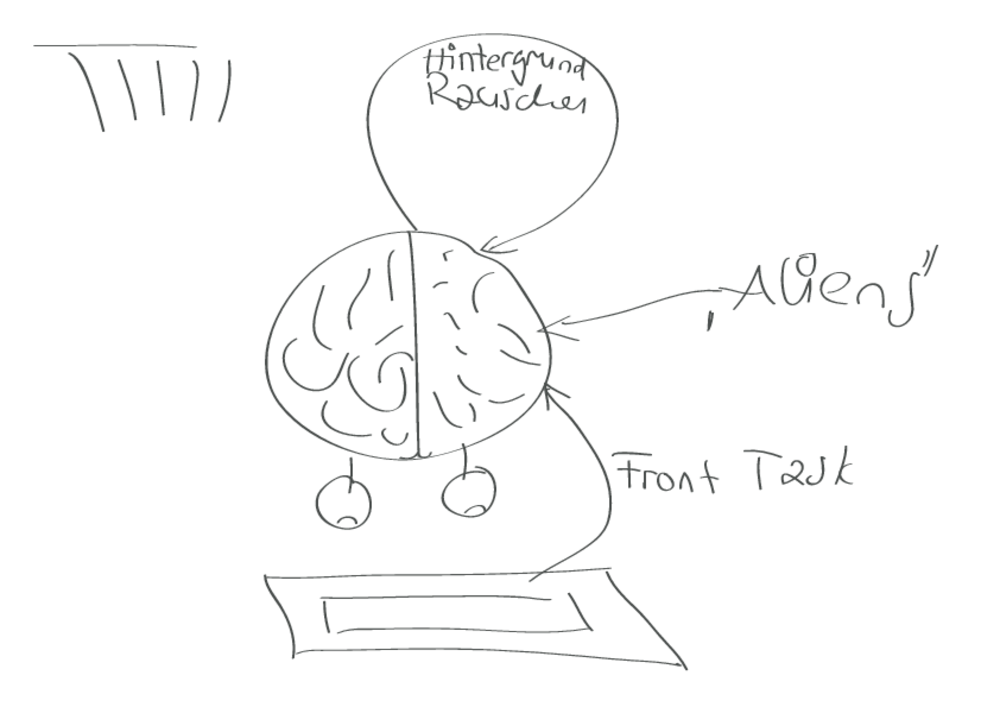 Hintergrund
Rauschen
„Aliens"
Front Task